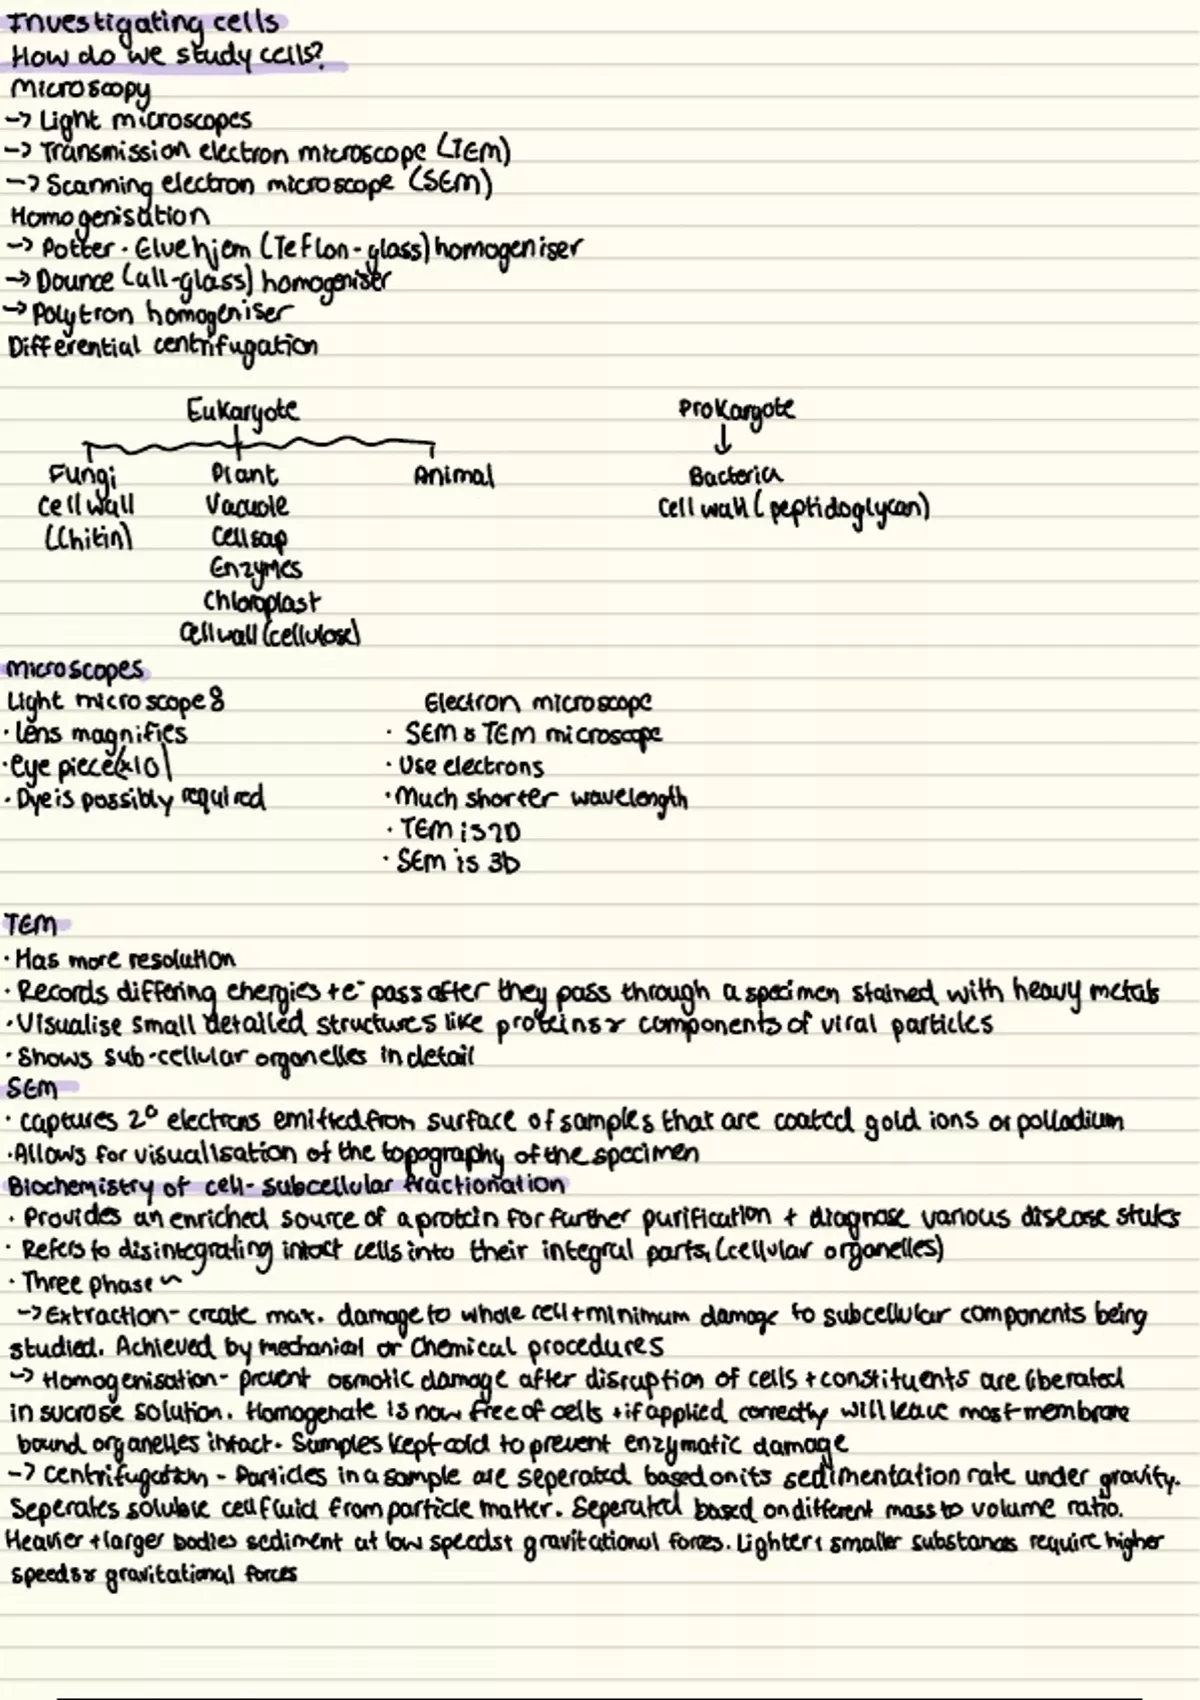 Investigating cells
How do we study cells?
Microscopy
-> Light microscopes
-> Transmission electron microscope (TEM)
-> Scanning electron microscope (SEM)
Homogenisation
-> Potter - Eluehjem (Teflon-glass) homogeniser
-> Dounce (all-glass) homogeniser
-> Polytron homogeniser
Differential centrifugation
Eukaryote Prokaryote
Fungi Plant Animal Bacteria
Cell wall Vacuole Cell wall (peptidoglycan)
(Chitin) Cell sap
Enzymes
Chloroplast
Cell wall (cellulose)
Microscopes
Light microscope: Electron microscope
· Lens magnifies · SEM & TEM microscope
· Eye piece (x10) · Use electrons
· Dye is possibly required · Much shorter wavelength
· TEM is 2D
· SEM is 3D
TEM
· Has more resolution
· Records differing energies + e⁻ pass after they pass through a specimen stained with heavy metals
· Visualise small detailed structures like proteins & components of viral particles
· Shows sub-cellular organelles in detail
SEM
· captures 2° electrons emitted from surface of samples that are coated gold ions or palladium
· Allows for visualisation of the topography of the specimen
Biochemistry of cell - subcellular fractionation
· Provides an enriched source of a protein for further purification + diagnose various disease states
· Refers to disintegrating intact cells into their integral parts, (cellular organelles)
· Three phase
-> Extraction - create max. damage to whole cell + minimum damage to subcellular components being
studied. Achieved by mechanical or chemical procedures
-> Homogenisation - prevent osmotic damage after disruption of cells + constituents are liberated
in sucrose solution. Homogenate is now free of cells + if applied correctly will leave most membrane
bound organelles intact. Samples kept cold to prevent enzymatic damage
-> Centrifugation - Particles in a sample are seperated based on its sedimentation rate under gravity.
Seperates soluble cell fluid from particle matter. Seperated based on different mass to volume ratio.
Heavier + larger bodies sediment at low speeds + gravitational forces. Lighter + smaller substances require higher
speeds & gravitational forces